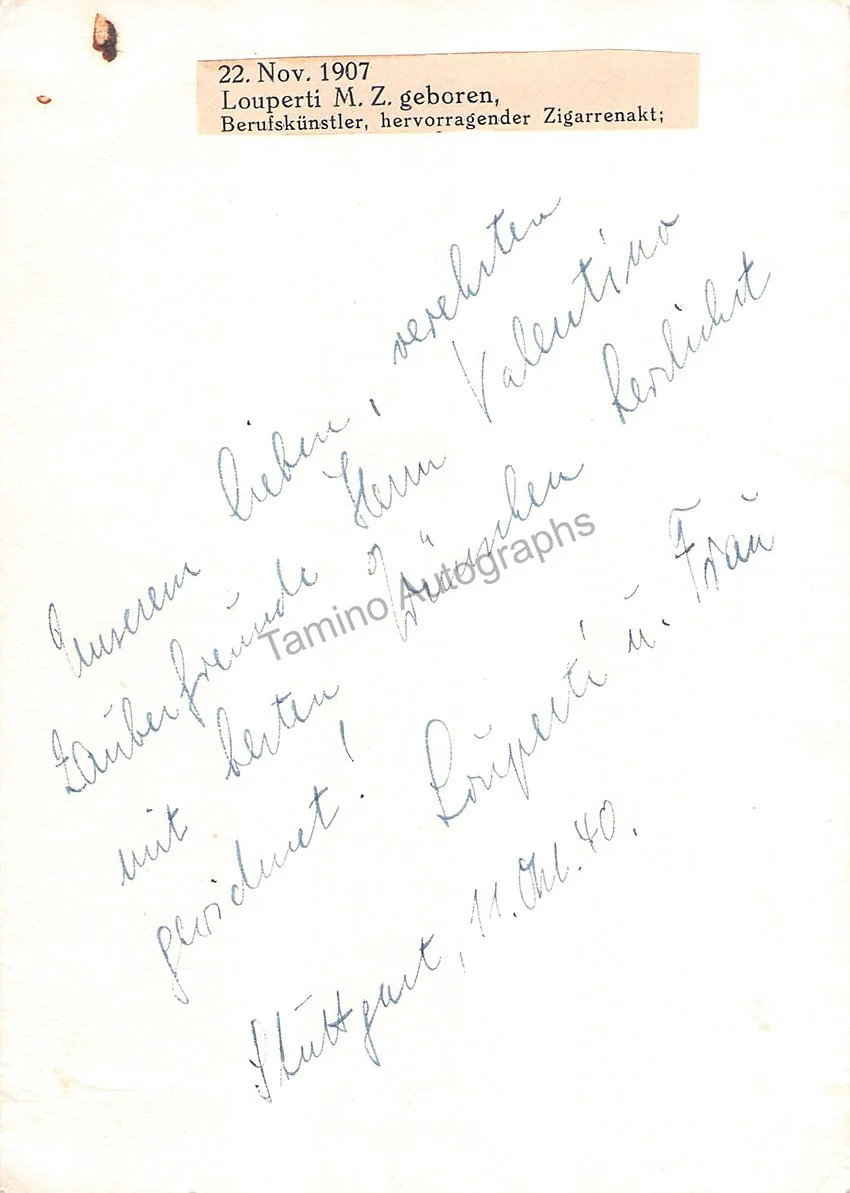 22. Nov. 1907
Louperti M. Z. geboren,
Berufskünstler, hervorragender Zigarrenakt;
Unserem lieben, verehrten
Zauberfreunde Herrn Valentino
mit besten Wünschen herzlichst
gewidmet! Louperti u. Frau
Stuttgart, 11. Okt. 40.
Tamino Autographs